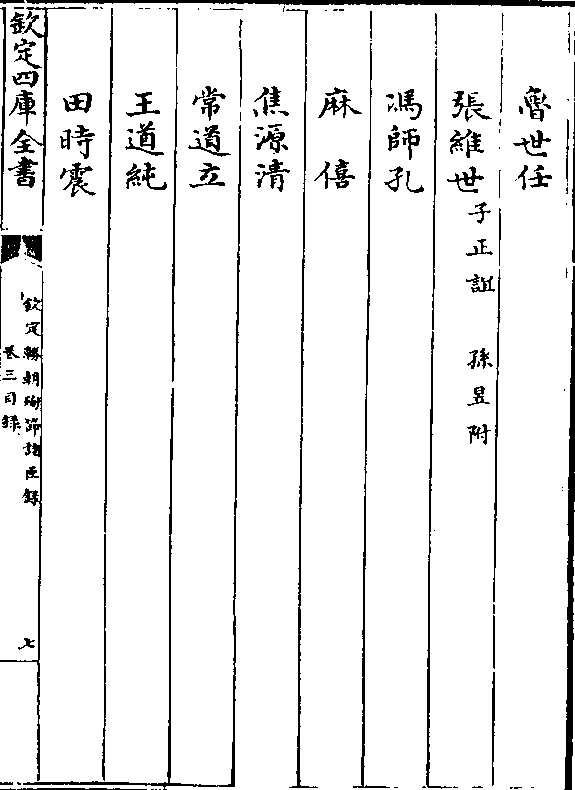 魯世任
張維世子正詛 孫昱附
馮師孔
麻僖
焦源清
常道立
王道純
田時震
欽定四庫全書
欽定勝朝殉節諸臣錄
卷三目錄
七